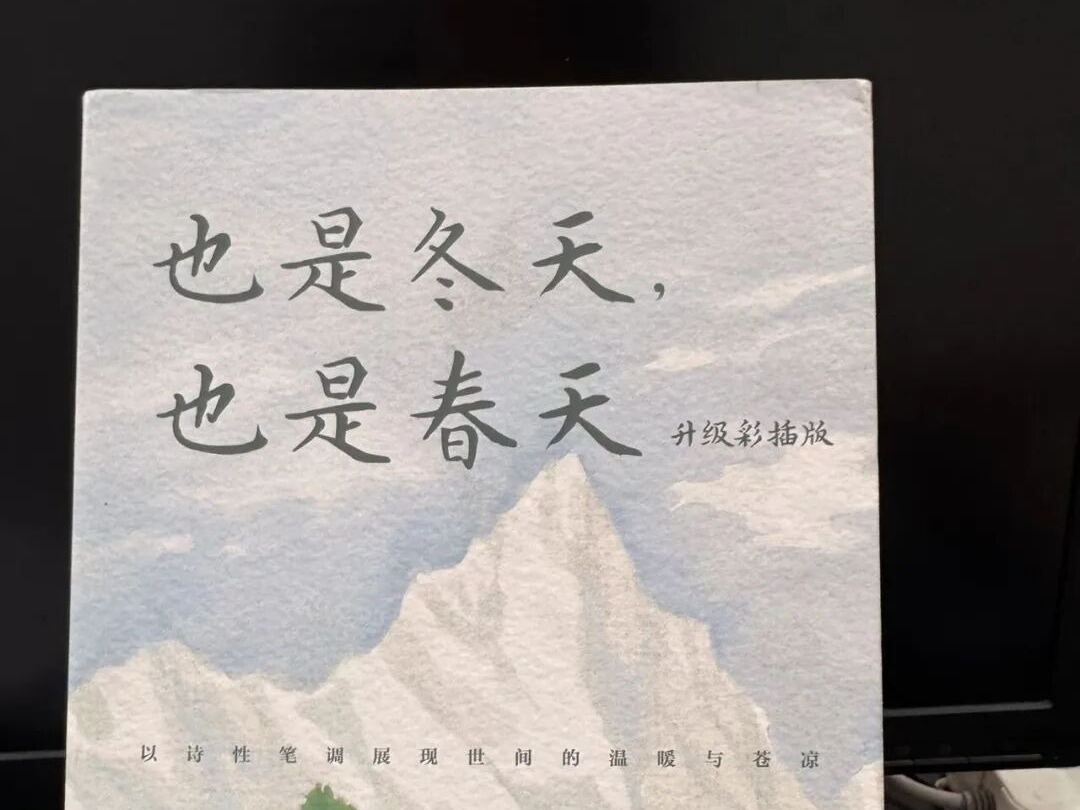 也是冬天，
也是春天 升级彩插版
以诗性笔调展现世间的温暖与苍凉